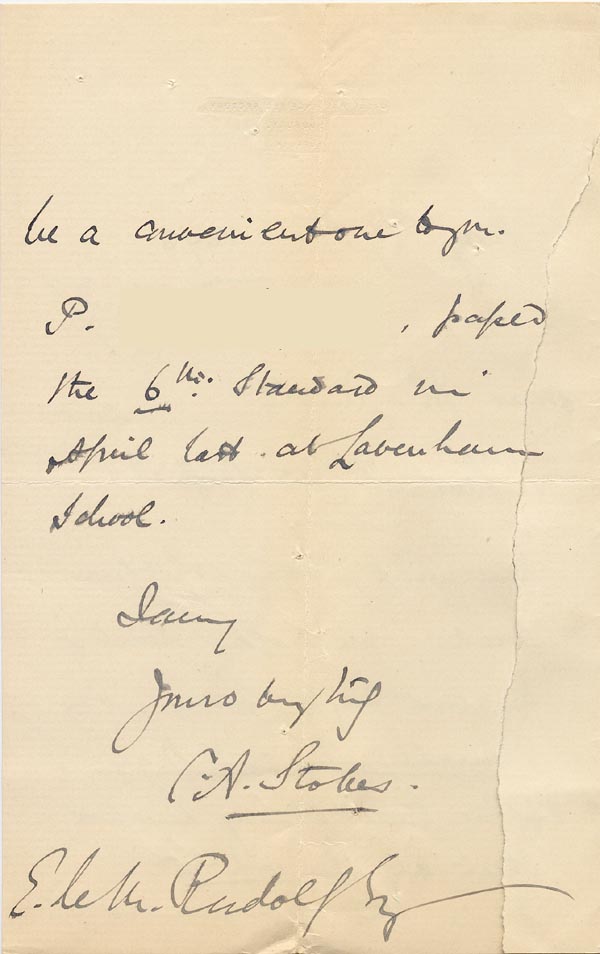 be a convenient one to you.
P. , passed
the 6th. Standard in
April last. at Lavenham
School.
I am
Yours very truly
C.A. Stokes.
E. de M. Rudolf Esq